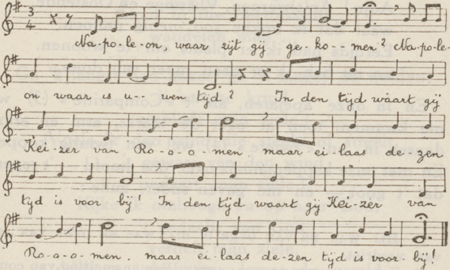 Na-po-le-on, waar zijt gij ge-ko--men? Na-pole-
on waar is u--wen tijd? In den tijd waart gij
Kei-zer van Ro-o-o-men. maar ei-laas de-zen
tijd is voor bij! In den tijd waart gij Kei-zer van
Ro-o-o-men. maar ei-laas de-zen tijd is voor-bij!